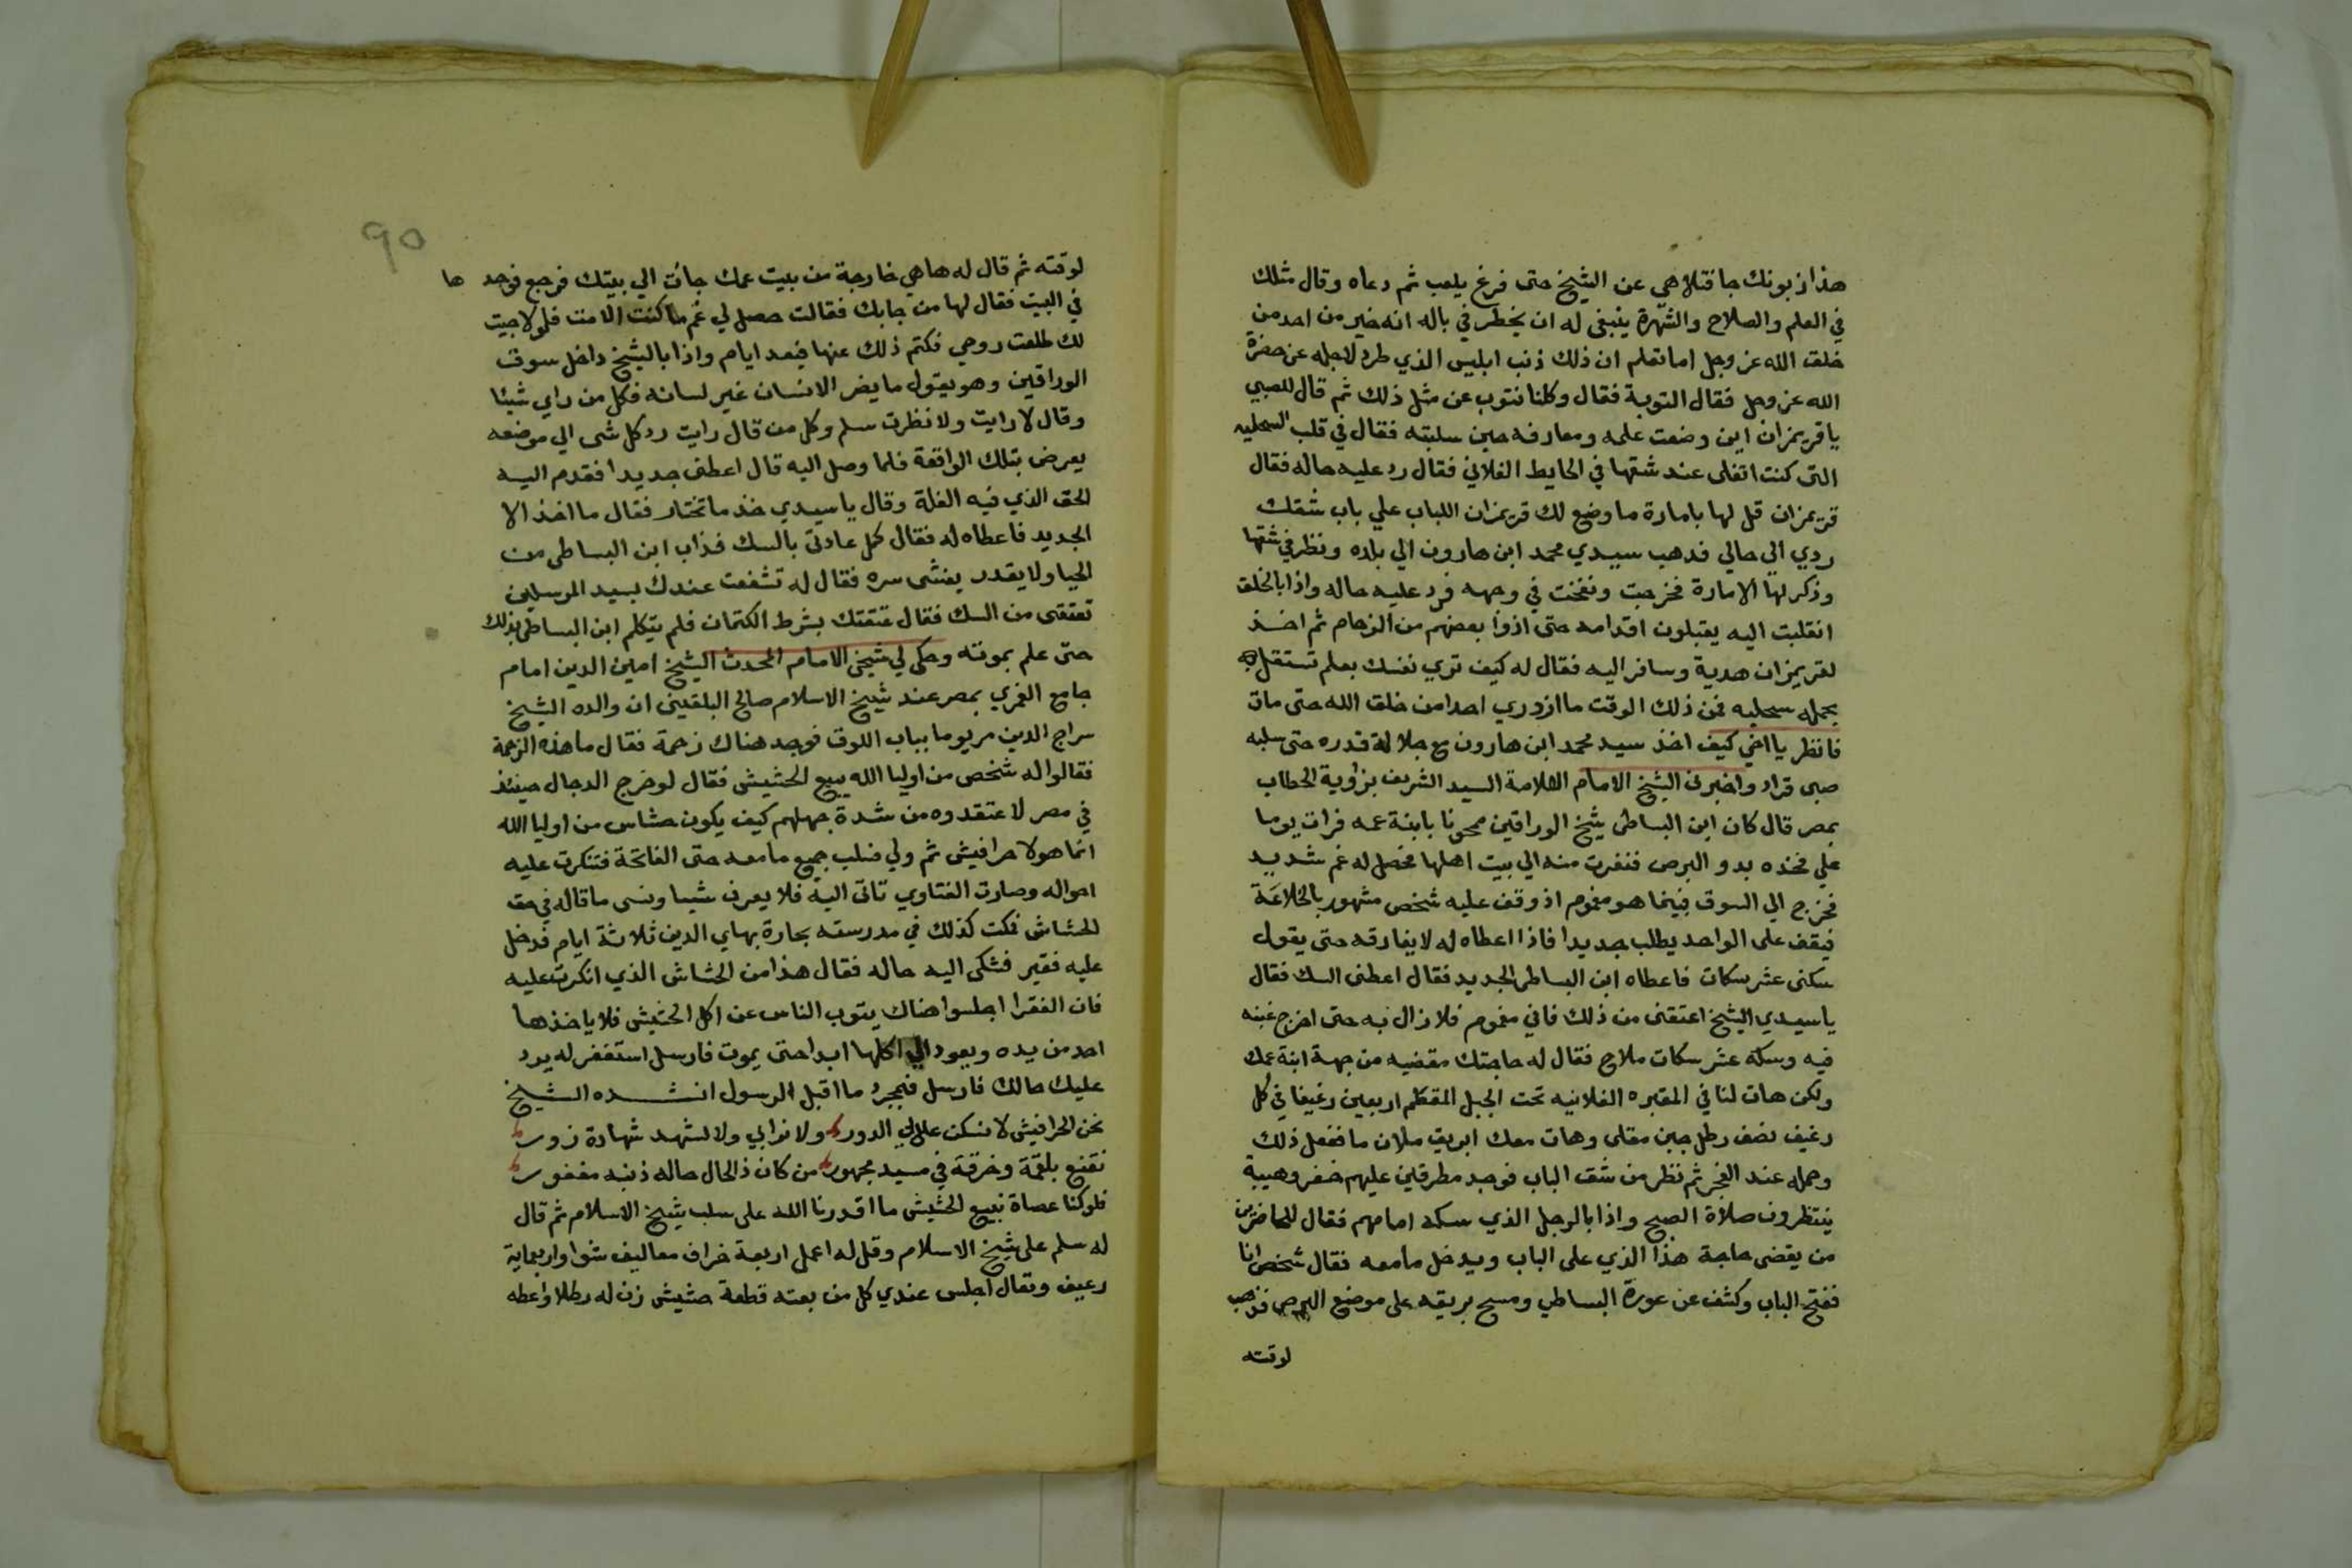 هذا زبونك جا فتلاهي عن الشيخ حتى فرغ يلعب ثم دعاه وقال مثلك
في العلم والصلاح والشهرة ينبغي له ان يخطر في باله انه خير من احد من
خلق الله عز وجل اما تعلم ان ذلك ذنب ابليس الذي طرد لاجله عن حضرة
الله عز وجل فقال التوبة فقال وكلنا نتوب عن مثل ذلك ثم قال للصبي
يا قريمزان اين وضعت علمه ومعارفه حين سلبته فقال في قلب السحليه
التي كنت اتفلى عند شقها في الحايط الفلاني فقال رد عليه حاله فقال
قريمزان قل لها بامارة ما وضع لك قريمزان اللباب علي باب شقك
ردي الي حالي فدهب سيدي محمد ابن هارون الي بلده ونظر في شقها
وذكر لها الامارة فخرجت ونفخت في وجهه فرد عليه حاله واذا بالخلق
انقلبت اليه يقبلون اقدامه حتى اذوا بعضهم من الزحام ثم اخذ
لقريمزان هدية وسافر اليه فقال له كيف تري نفسك بعلم تستقل به
بحمله سحليه فمن ذلك الوقت ما ازدري احدا من خلق الله حتى مات
فانظر يا اخي كيف اخذ سيد محمد ابن هارون مع جلالة قدره حتى سلبه
صبي قراد واخبرني الشيخ الامام العلامة السيد الشريف بزاوية الحطاب
بمصر قال كان ابن البساطي شيخ الوراقين ممحونا بابنة عمه فرات يوما
علي فخذه بدو البرص فنفرت منه الي بيت اهلها فحصل له غم شديد
فخرج الي السوق فبينما هو مغموم اذ وقف عليه شخص مشهور بالخلاعة
فيقف على الواحد يطلب جديدا فاذا اعطاه له لا يفارقه حتى يقول
سكنى عشر سكات فاعطاه ابن البساطي الجديد فقال اعطني السك فقال
يا سيدي الشيخ اعتقني من ذلك فاني مغموم فلا زال به حتى اخرج غبنه
فيه وسكه عشر سكات ملاح فقال له حاجتك مقضيه من جهة ابنة عمك
ولكن هات لنا في المقبره الفلانيه تحت الجبل المقطم اربعين رغيفا في كل
رغيف نصف رطل جبن مقلى وهات معك ابريق ملان ما ففعل ذلك
وحمله عند الفجر ثم نظر من شق الباب فوجد مطرقين عليهم خفر وهيبة
ينتظرون صلاة الصبح واذا بالرجل الذي سكه امامهم فقال للحاضرين
من يقضى حاجة هذا الذي على الباب ويدخل ما معه فقال شخص انا
ففتح الباب وكشف عن عورة البساطي ومسح بريقه على موضع البرص فذهب
لوقته
90
لوقته ثم قال له ها هي خارجة من بيت عمك جأت الي بيتك فرجع فوجد ها
في البيت فقال لها من جابك فقالت حصل لي غم ما كنت الا مت فلولا جيت
لك طلعت روحي فكتم ذلك عنها فبعد ايام واذا بالشيخ داخل سوق
الوراقين وهو يقول ما يضر الانسان غير لسانه فكل من راي شيئا
وقال لا رايت ولا نظرت سلم وكل من قال رايت رد كل شى الي موضعه
يعرض بتلك الواقعة فلما وصل اليه قال اعطني جديدا فقدم اليه
الحق الذي فيه الغلة وقال يا سيدي خذ ما تختار فقال ما اخذ الا
الجديد فاعطاه له فقال كمل عادتي بالسك فذاب ابن البساطي من
الحيا ولا يقدر يفشى سره فقال له تشفعت عندك بسيد المرسلين
تعتقني من السك فقال عتقتك بشرط الكتمان فلم يتكلم ابن البساطي بذلك
حتى علم بموته وحكى لي شيخي الامام المحدث الشيخ امين الدين امام
جامع الغمري بمصر عند شيخ الاسلام صالح البلقيني ان والده الشيخ
سراج الدين مر يوما بباب اللوق فوجد هناك زحمة فقال ما هذه الزحمة
فقالوا له شخص من اوليا الله يبيع الحشيش فقال لو خرج الدجال حينئذ
في مصر لاعتقدوه من شدة جهلهم كيف يكون حشاس من اوليا الله
انما هولا حرافيش ثم ولي فسلب جميع ما معه حتى الفاتحة فتنكرت عليه
احواله وصارت الفتاوي تاتي اليه فلا يعرف شيا ونسى ما قاله في حق
الحشاش فمكت كذلك في مدرسته بحارة بهاي الدين ثلاثة ايام فدخل
عليه فقير فشكى اليه حاله فقال هذا من الحشاش الذي انكرت عليه
فان الفقرا اجلسوا هناك يتوب الناس عن اكل الحشيش فلا ياخذها
احد من يده ويعود الي اكلها ابدا حتى يموت فارسل استغفر له يرد
عليك حالك فارسل فبمجرد ما اقبل الرسول انشده الشيخ
نحن الحرافيش لا نسكن علالي الدور ولا نرابي ولا نشهد شهادة زور
نقنع بلقمة وخرقة في مسيد مهجور من كان ذا الحال حاله ذنبه مغفور
فلو كنا عصاة نبيع الحشيش ما اقدرنا الله على سلب شيخ الاسلام ثم قال
له سلم على شيخ الاسلام وقل له اعمل اربعة خراف معاليف شوا واربعماية
رغيف وتعال اجلس عندي كل من بعته قطعة حشيش زن له رطلا واعطه